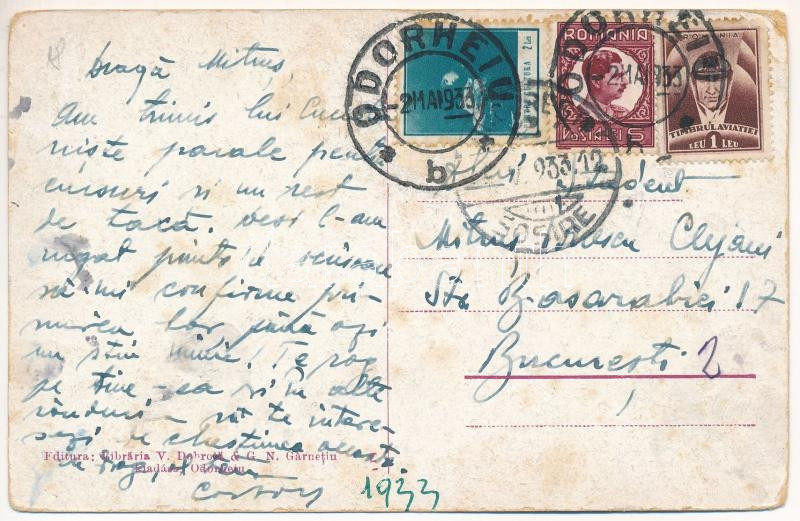 Dragă Mitruș,
Am trimis lui
niște parale pentru
cursuri și un rest
de taxă. Deși l-am
rugat printr'o scrisoare
să-mi confirme pri-
mirea lor, până azi
nu știu nimic. Te rog
pe tine - ca și în alte
rânduri - să te intere-
sezi de chestiunea aceasta
Editura: Librăria V. Dobrotă & G. N. Gârnețiu
Odorheiu
1933
ODORHEIU
-2 MAI 933
b
ROMANIA
POSTA LEI 6
ODORHEIU
-2 MAI 933
ROMANIA
TIMBRUL AVIATIEI
LEU 1 LEU
2 Lei
933.12
SOSIRE
Student
Mitruș Clejani
Str. Basarabiei 17
București 2